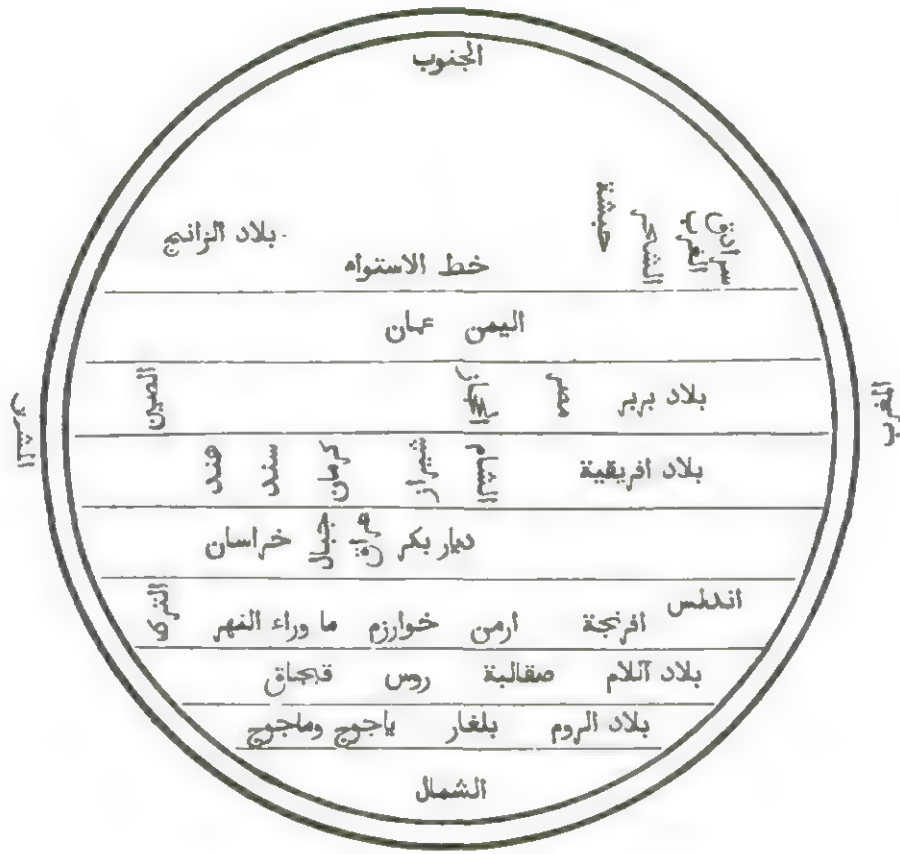 الجنوب
سرادق الغرب
الشحر
حبشة
بلاد الزانج
خط الاستواء
اليمن عمان
المغرب
بلاد بربر مصر الحجاز الصين
بلاد افريقية الشام شيراز كرمان سند هند
ديار بكر عراق جبال خراسان
اندلس افرنجة ارمن خوارزم ما وراء النهر الترك
بلاد اللام صقالبة روس قبجاق
بلاد الروم بلغار ياجوج وماجوج
الشمال